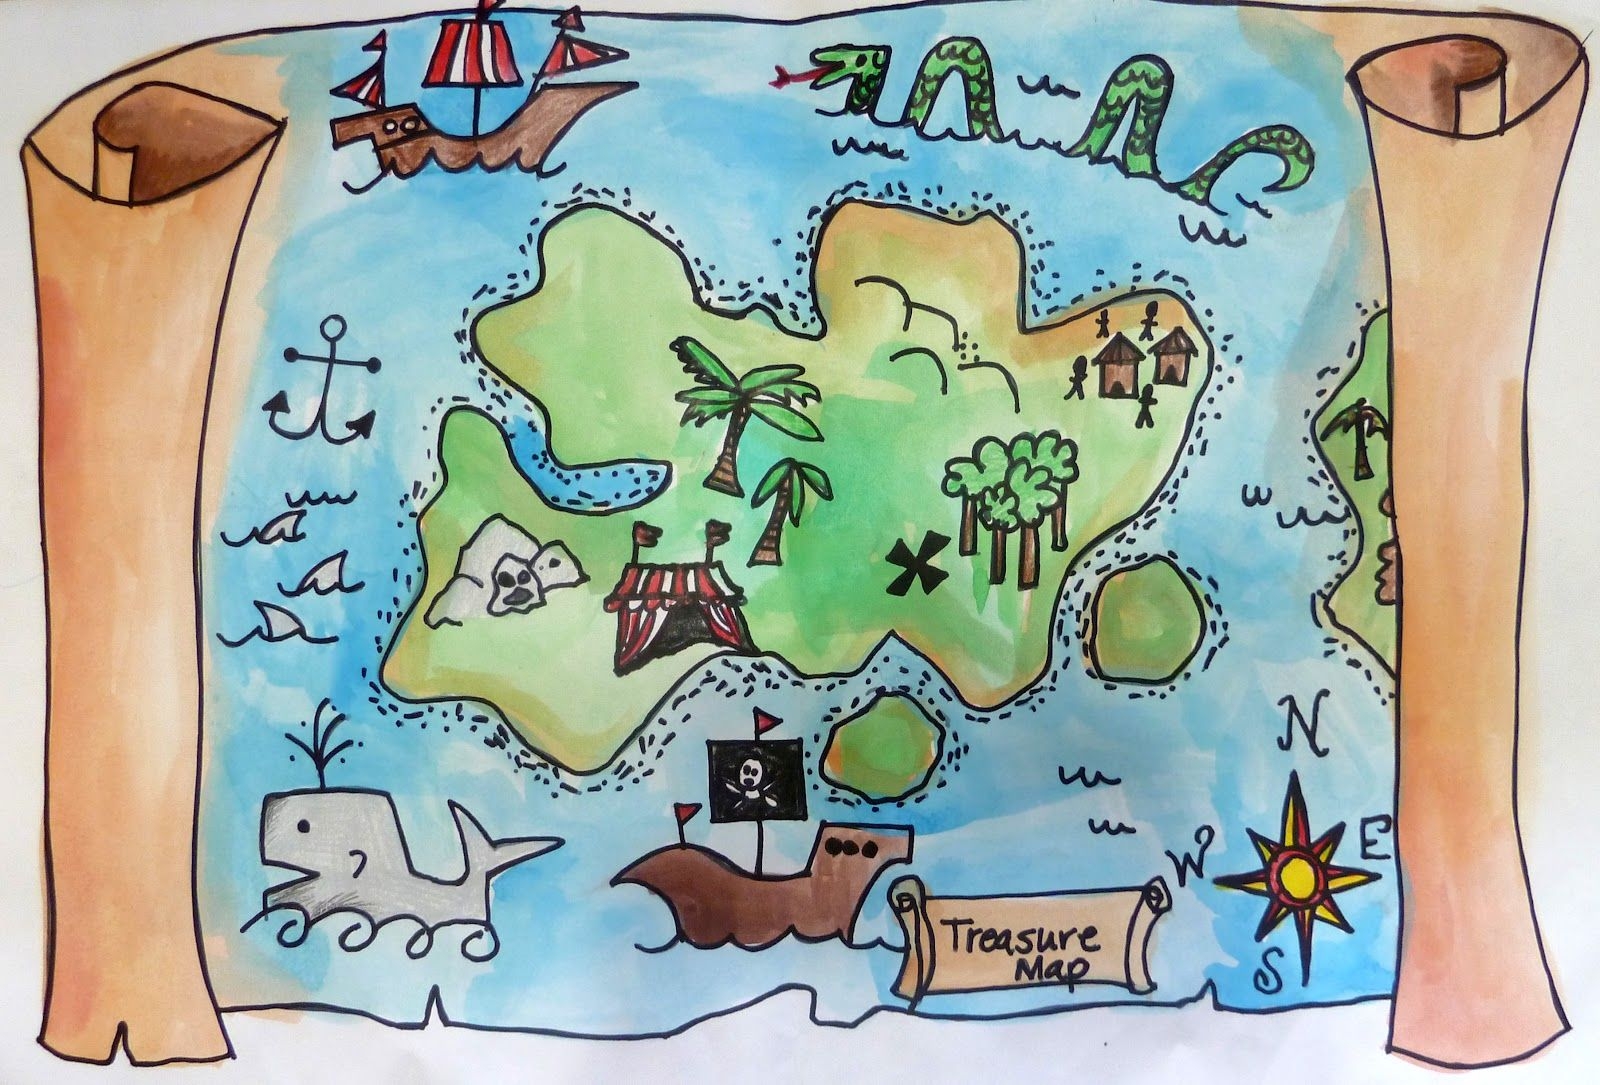 N
W
E
S
Treasure
Map